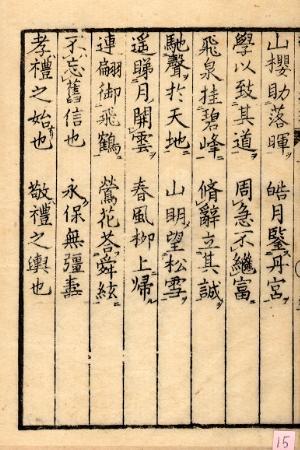 山櫻助落暉　皓月鑒丹宮
學以致其道　周急不繼富
飛泉挂碧峰　脩辭立其誠
馳聲於天地　山明望松雪
遥睇月開雲　春風柳上帰
連翩御飛鶴　鶯花荅舜絃
不忘舊信也　永保無彊壽
孝禮之始也　敬禮之輿也
15